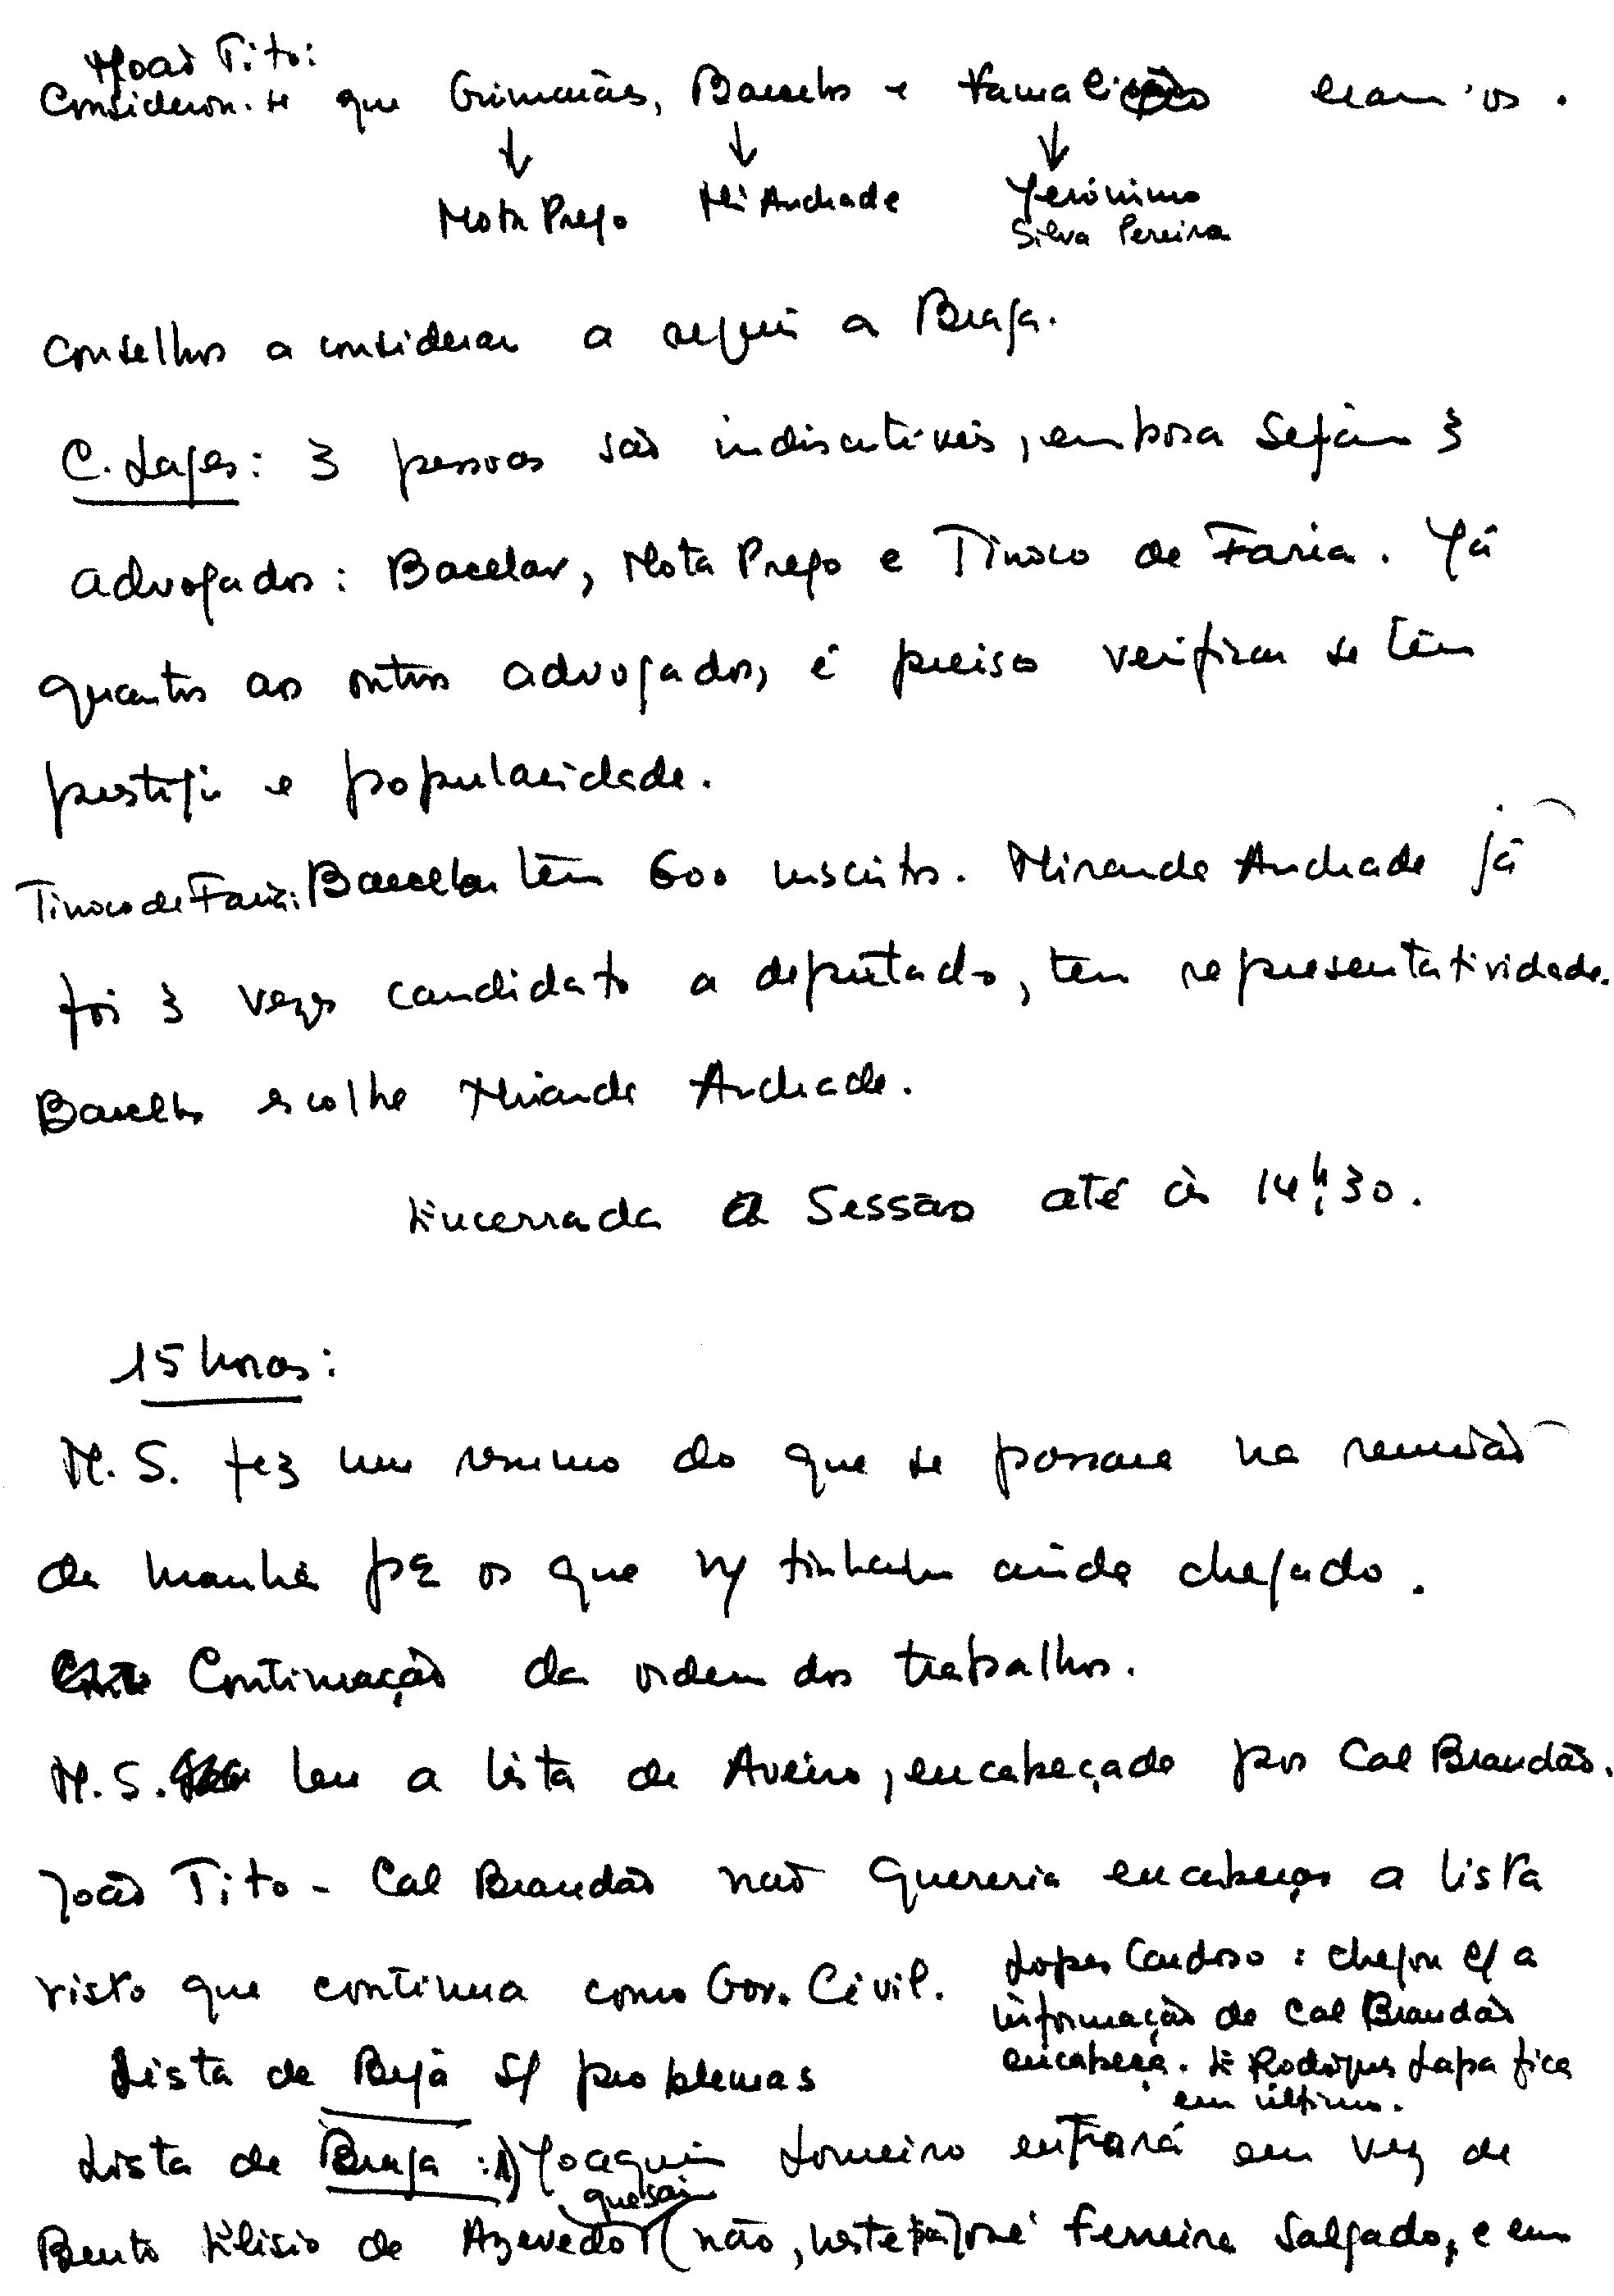 João Tito:
Consideron-se que Guimarães, Barcelos e Famalicão eram os.
Mota Prego Mi Andrade Jerónimo
Silva Pereira
Conselhos a considerar a seguir a Braga.
C. Lages: 3 pessoas são indiscutíveis, embora sejam 3
advogados: Bacelar, Mota Prego e Tinoco de Faria. Já
quantos aos outros advogados, é preciso verificar se têm
prestígio e popularidade.
Tinoco de Faria: Barcelos têm 600 inscritos. Miranda Andrade já
foi 3 vezes candidato a deputado, tem representatividade.
Barcelos escolhe Miranda Andrade.
Encerrada a Sessão até às 14h30.
15 horas:
M. S. fez um resumo do que se passara na reunião
da manhã pª os que ñ tinham ainda chegado.
Continuação da ordem dos trabalhos.
M. S. leu a lista de Aveiro, encabeçada por Cal Brandão.
João Tito - Cal Brandão não quereria encabeçar a lista
visto que continua como Gov. Civil.
Lopes Cardoso: chegou c/ a
informação de Cal Brandão
encabeça. E Rodrigues Lapa fica
em último.
Lista de Beja s/ problemas
Lista de Braga: 1) Joaquim Loureiro entrará em vez de
que sai
Bento Elísio de Azevedo (não, neste José Ferreira Salgado, e em